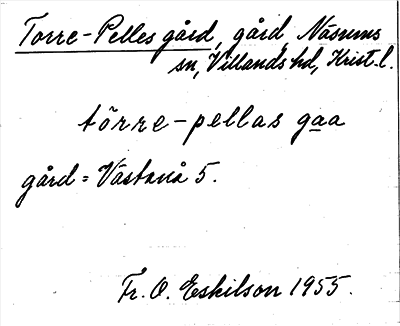 Torre-Pelles gård, gård, Näsums
sn, Villands hd, Krist. l.
törre-pellas gaa
gård = Västanå 5.
Fr. O. Eskilson 1955.